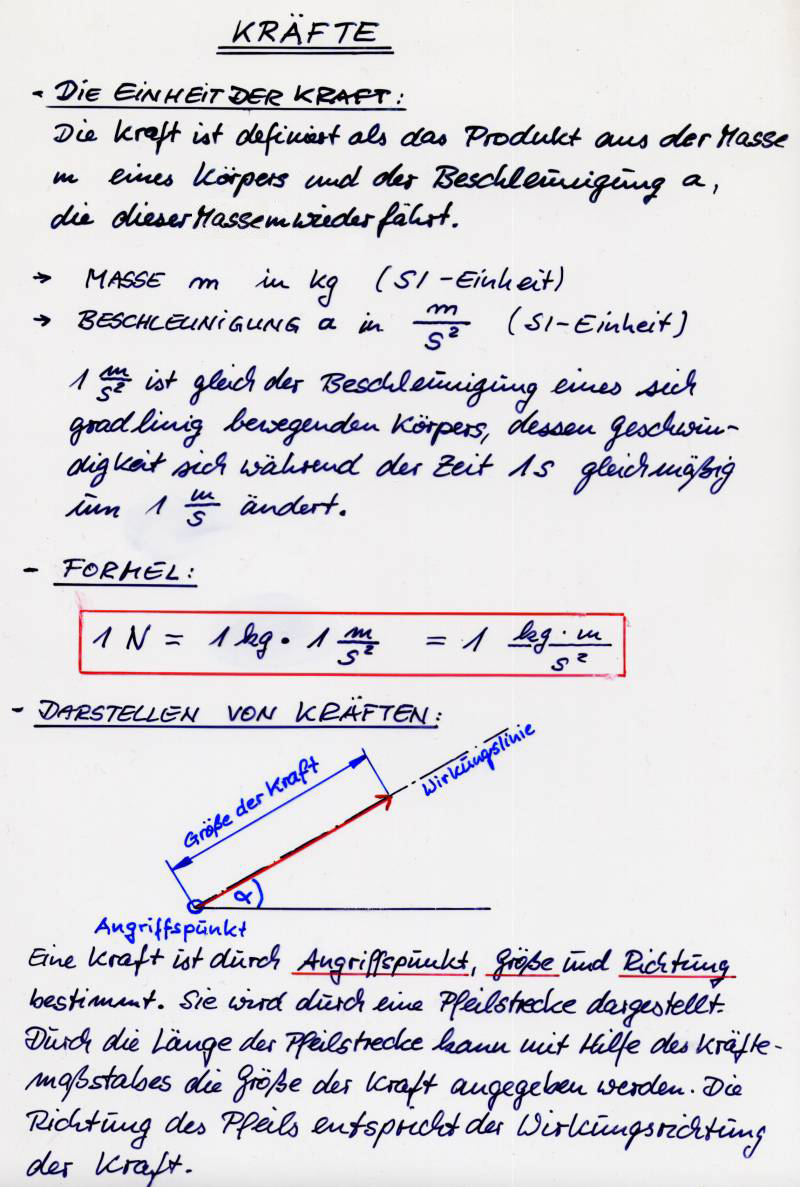 KRÄFTE
- DIE EINHEIT DER KRAFT:
Die Kraft ist definiert als das Produkt aus der Masse
m eines Körpers und der Beschleunigung a,
die dieser Masse m wiederfährt.
→ MASSE m in kg (SI-Einheit)
→ BESCHLEUNIGUNG a in m/s² (SI-Einheit)
1 m/s² ist gleich der Beschleunigung eines sich
gradlinig bewegenden Körpers, dessen Geschwin-
digkeit sich während der Zeit 1s gleichmäßig
um 1 m/s ändert.
- FORMEL:
1 N = 1 kg · 1 m/s² = 1 kg · m/s²
- DARSTELLEN VON KRÄFTEN:
Wirkungslinie
Größe der Kraft
α
Angriffspunkt
Eine Kraft ist durch Angriffspunkt, Größe und Richtung
bestimmt. Sie wird durch eine Pfeilstrecke dargestellt.
Durch die Länge der Pfeilstrecke kann mit Hilfe des Kräfte-
maßstabes die Größe der Kraft angegeben werden. Die
Richtung des Pfeils entspricht der Wirkungsrichtung
der Kraft.